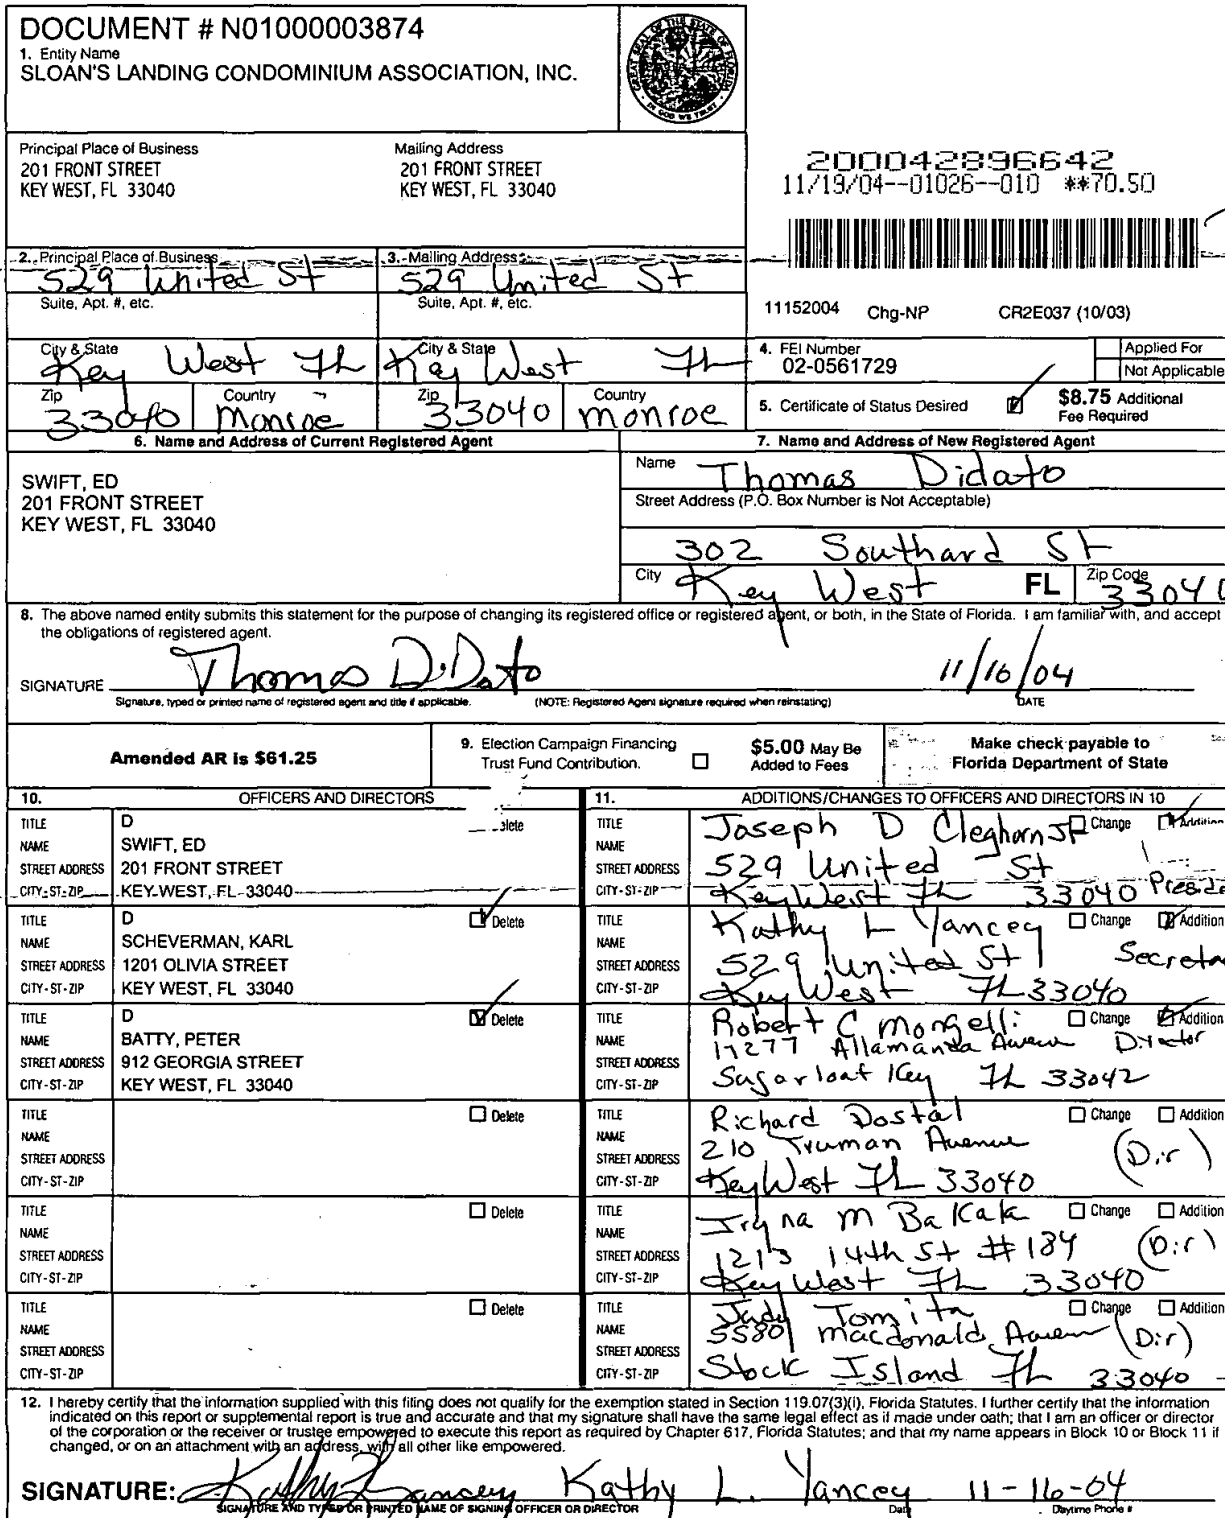 DOCUMENT # N01000003874
1. Entity Name
SLOAN'S LANDING CONDOMINIUM ASSOCIATION, INC.
GREAT SEAL OF THE STATE OF FLORIDA
IN GOD WE TRUST
Principal Place of Business
201 FRONT STREET
KEY WEST, FL 33040
Mailing Address
201 FRONT STREET
KEY WEST, FL 33040
200042896642
11/19/04--01026--010 **70.50
2. Principal Place of Business
529 United St
Suite, Apt. #, etc.
City & State
Key West FL
Zip
33040
Country
Monroe
3. Mailing Address
529 United St
Suite, Apt. #, etc.
City & State
Key West FL
Zip
33040
Country
Monroe
11152004 Chg-NP CR2E037 (10/03)
4. FEI Number
02-0561729
Applied For
Not Applicable
5. Certificate of Status Desired
$8.75 Additional
Fee Required
6. Name and Address of Current Registered Agent
SWIFT, ED
201 FRONT STREET
KEY WEST, FL 33040
7. Name and Address of New Registered Agent
Name Thomas Didato
Street Address (P.O. Box Number is Not Acceptable)
302 Southard St
City Key West FL Zip Code 33040
8. The above named entity submits this statement for the purpose of changing its registered office or registered agent, or both, in the State of Florida. I am familiar with, and accept
the obligations of registered agent.
SIGNATURE Thomas DiDato 11/16/04
Signature, typed or printed name of registered agent and title if applicable. (NOTE: Registered Agent signature required when reinstating) DATE
Amended AR is $61.25
9. Election Campaign Financing
Trust Fund Contribution.
$5.00 May Be
Added to Fees
Make check payable to
Florida Department of State
10. OFFICERS AND DIRECTORS
TITLE D
NAME SWIFT, ED
STREET ADDRESS 201 FRONT STREET
CITY-ST-ZIP KEY WEST, FL 33040
TITLE D Delete
NAME SCHEVERMAN, KARL
STREET ADDRESS 1201 OLIVIA STREET
CITY-ST-ZIP KEY WEST, FL 33040
TITLE D Delete
NAME BATTY, PETER
STREET ADDRESS 912 GEORGIA STREET
CITY-ST-ZIP KEY WEST, FL 33040
TITLE Delete
NAME
STREET ADDRESS
CITY-ST-ZIP
TITLE Delete
NAME
STREET ADDRESS
CITY-ST-ZIP
TITLE Delete
NAME
STREET ADDRESS
CITY-ST-ZIP
11. ADDITIONS/CHANGES TO OFFICERS AND DIRECTORS IN 10
TITLE Change Addition
NAME Joseph D Cleghorn Jr
STREET ADDRESS 529 United St
CITY-ST-ZIP Key West FL 33040 Preside
TITLE Change Addition
NAME Kathy L Yancey
STREET ADDRESS 529 United St Secreta
CITY-ST-ZIP Key West FL 33040
TITLE Robert C Mongelli Change Addition
NAME 17277 Allamanda Avenue Director
STREET ADDRESS
CITY-ST-ZIP Sugarloaf Key FL 33042
TITLE Richard Dostal Change Addition
NAME
STREET ADDRESS 210 Truman Avenue (Dir)
CITY-ST-ZIP Key West FL 33040
TITLE Iryna M Bakala Change Addition
NAME
STREET ADDRESS 1213 14th St #184 (Dir)
CITY-ST-ZIP Key West FL 33040
TITLE Judy Tomita Change Addition
NAME 5580 Macdonald Avenue (Dir)
STREET ADDRESS
CITY-ST-ZIP Stock Island FL 33040
12. I hereby certify that the information supplied with this filing does not qualify for the exemption stated in Section 119.07(3)(i), Florida Statutes. I further certify that the information
indicated on this report or supplemental report is true and accurate and that my signature shall have the same legal effect as if made under oath; that I am an officer or director
of the corporation or the receiver or trustee empowered to execute this report as required by Chapter 617, Florida Statutes; and that my name appears in Block 10 or Block 11 if
changed, or on an attachment with an address, with all other like empowered.
SIGNATURE: Kathy Yancey Kathy L. Yancey 11-16-04
SIGNATURE AND TYPED OR PRINTED NAME OF SIGNING OFFICER OR DIRECTOR Date Daytime Phone #